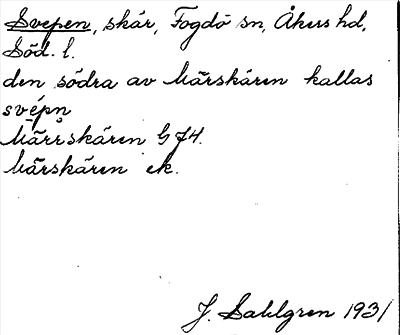 Svepen, skär, Fogdö sn, Åkers hd,
Söd. l.
den södra av Mårskären kallas
svépn̥
Mårrskären G 74.
Mårskären ek.
J. Sahlgren 1931